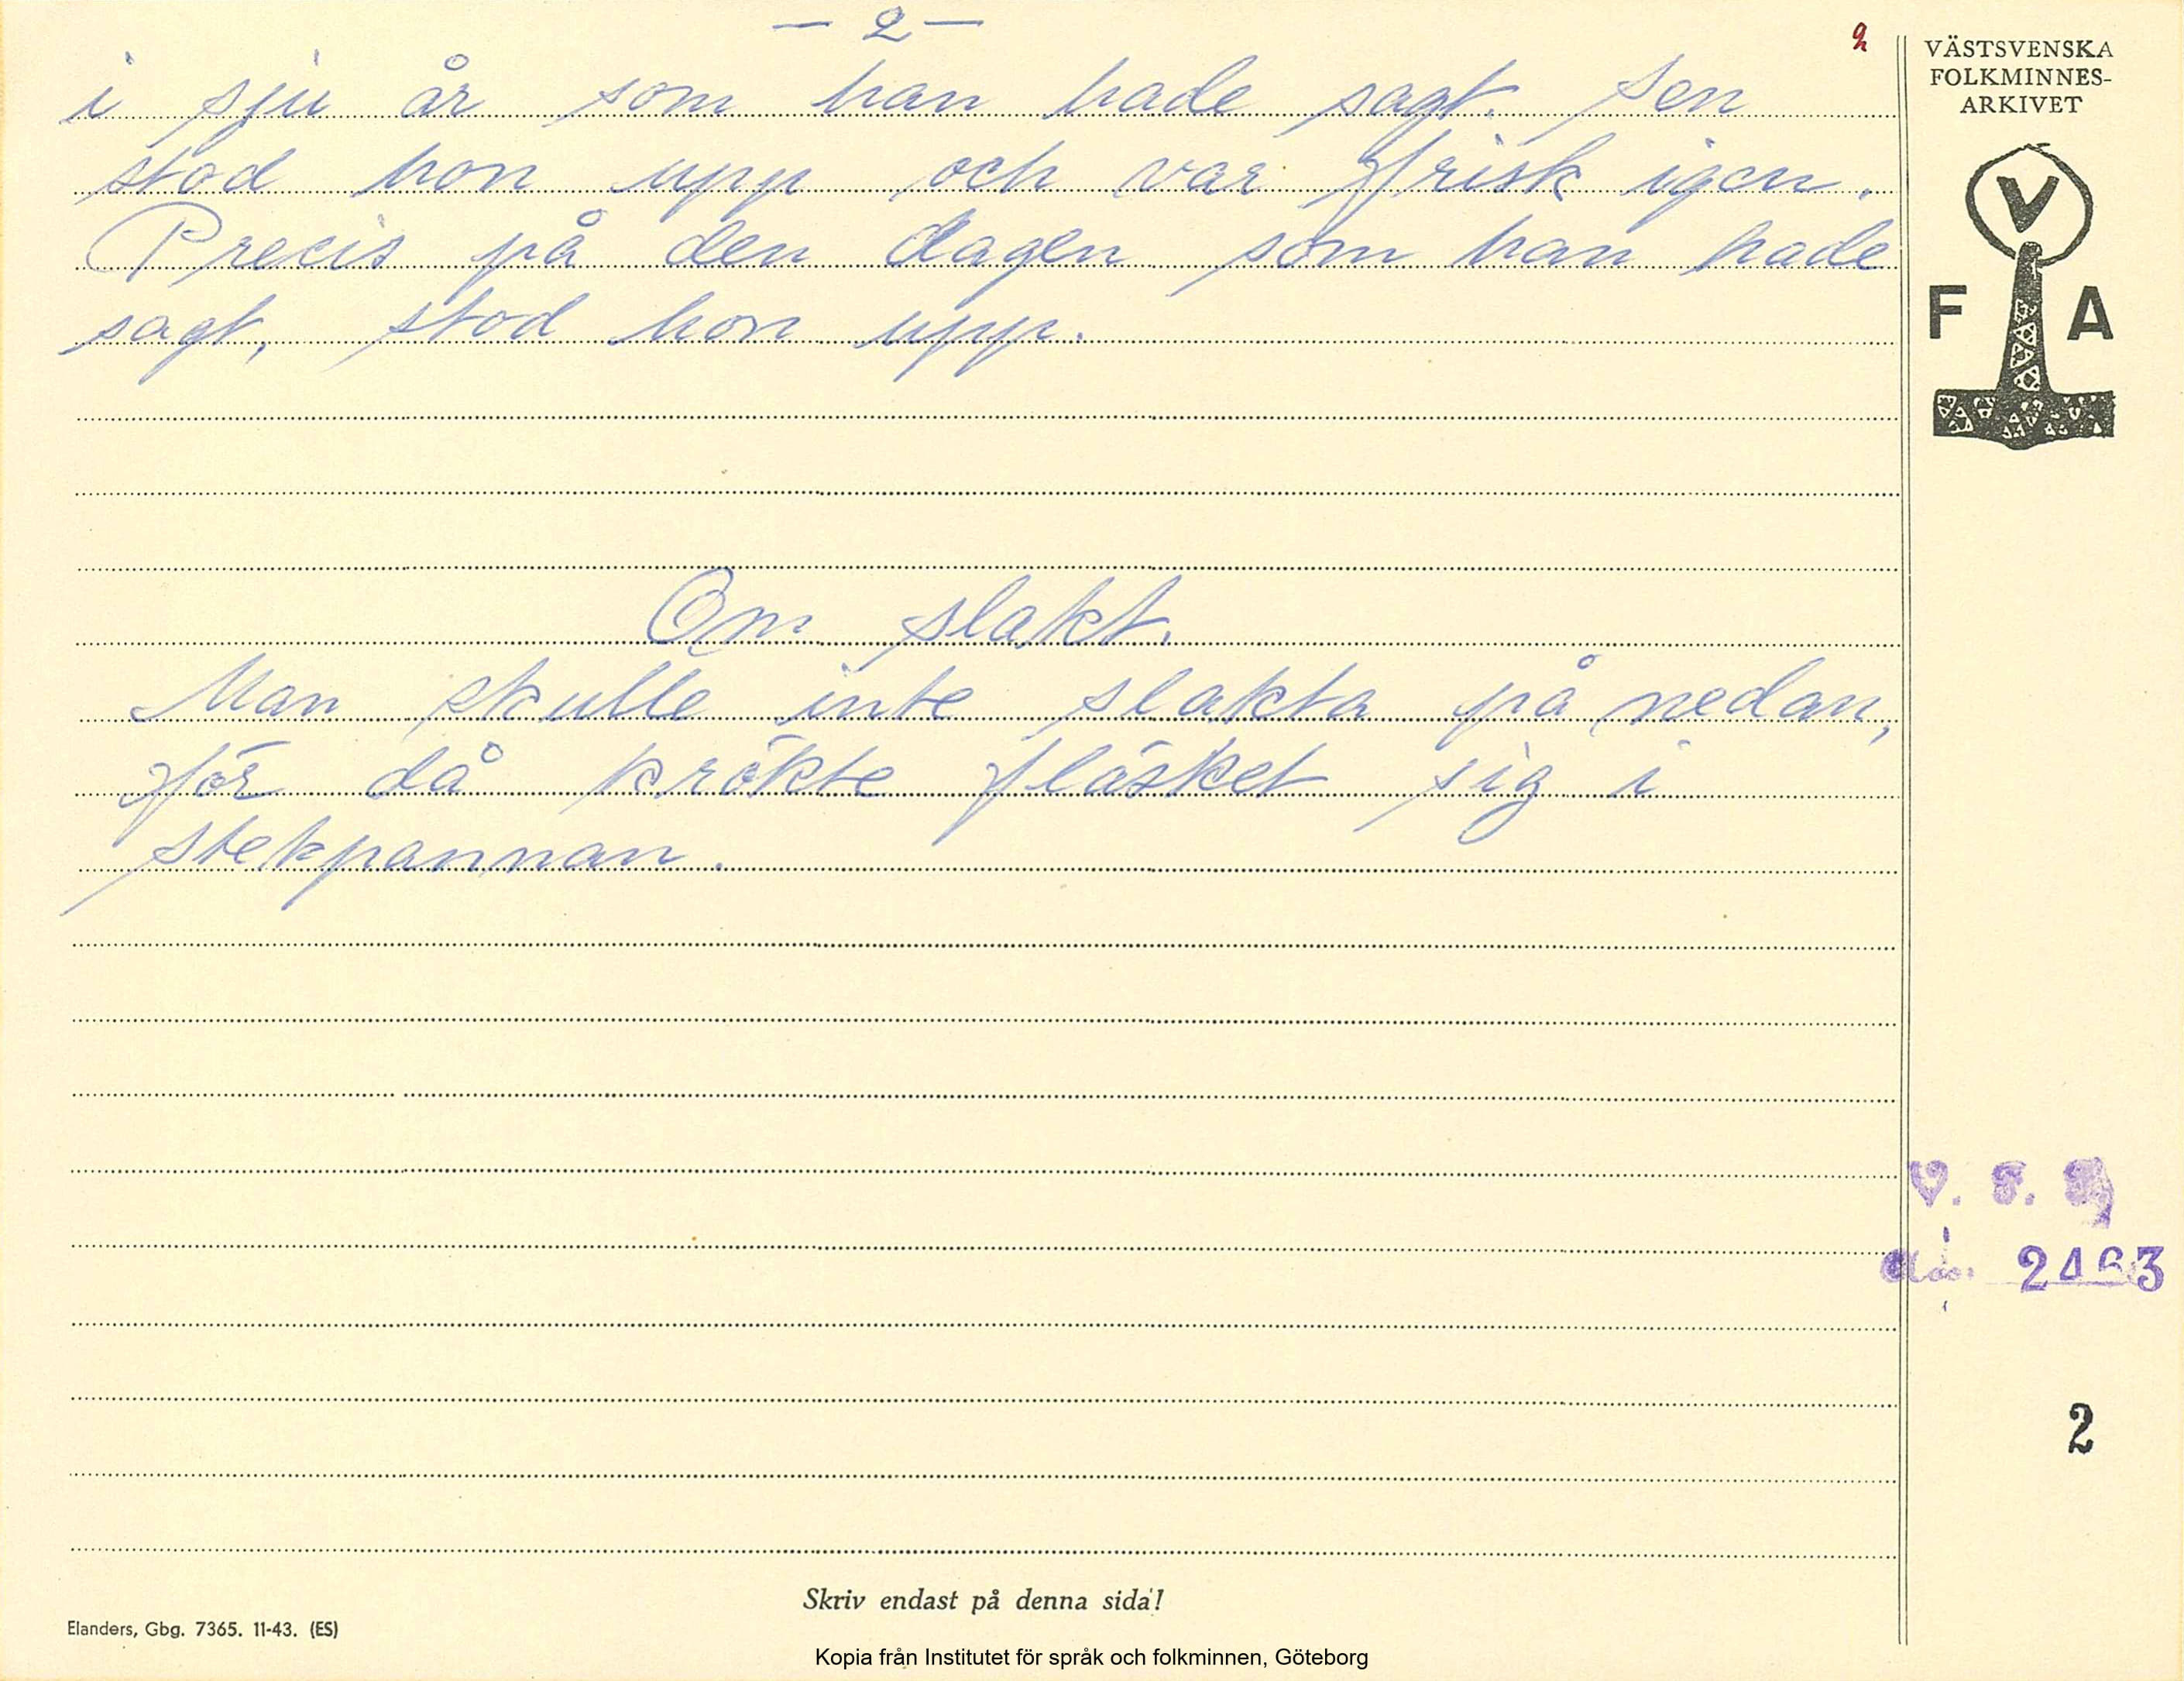 — 2 —
2
i sju år som han hade sagt. Sen
stod hon upp och var frisk igen.
Precis på den dagen som han hade
sagt, stod hon upp.
Om slakt.
Man skulle inte slakta på nedan,
för då krökte fläsket sig i
stekpannan.
VÄSTSVENSKA
FOLKMINNES-
ARKIVET
V
F A
V. F.
2463
2
Skriv endast på denna sida!
Elanders, Gbg. 7365. 11-43. (ES)
Kopia från Institutet för språk och folkminnen, Göteborg